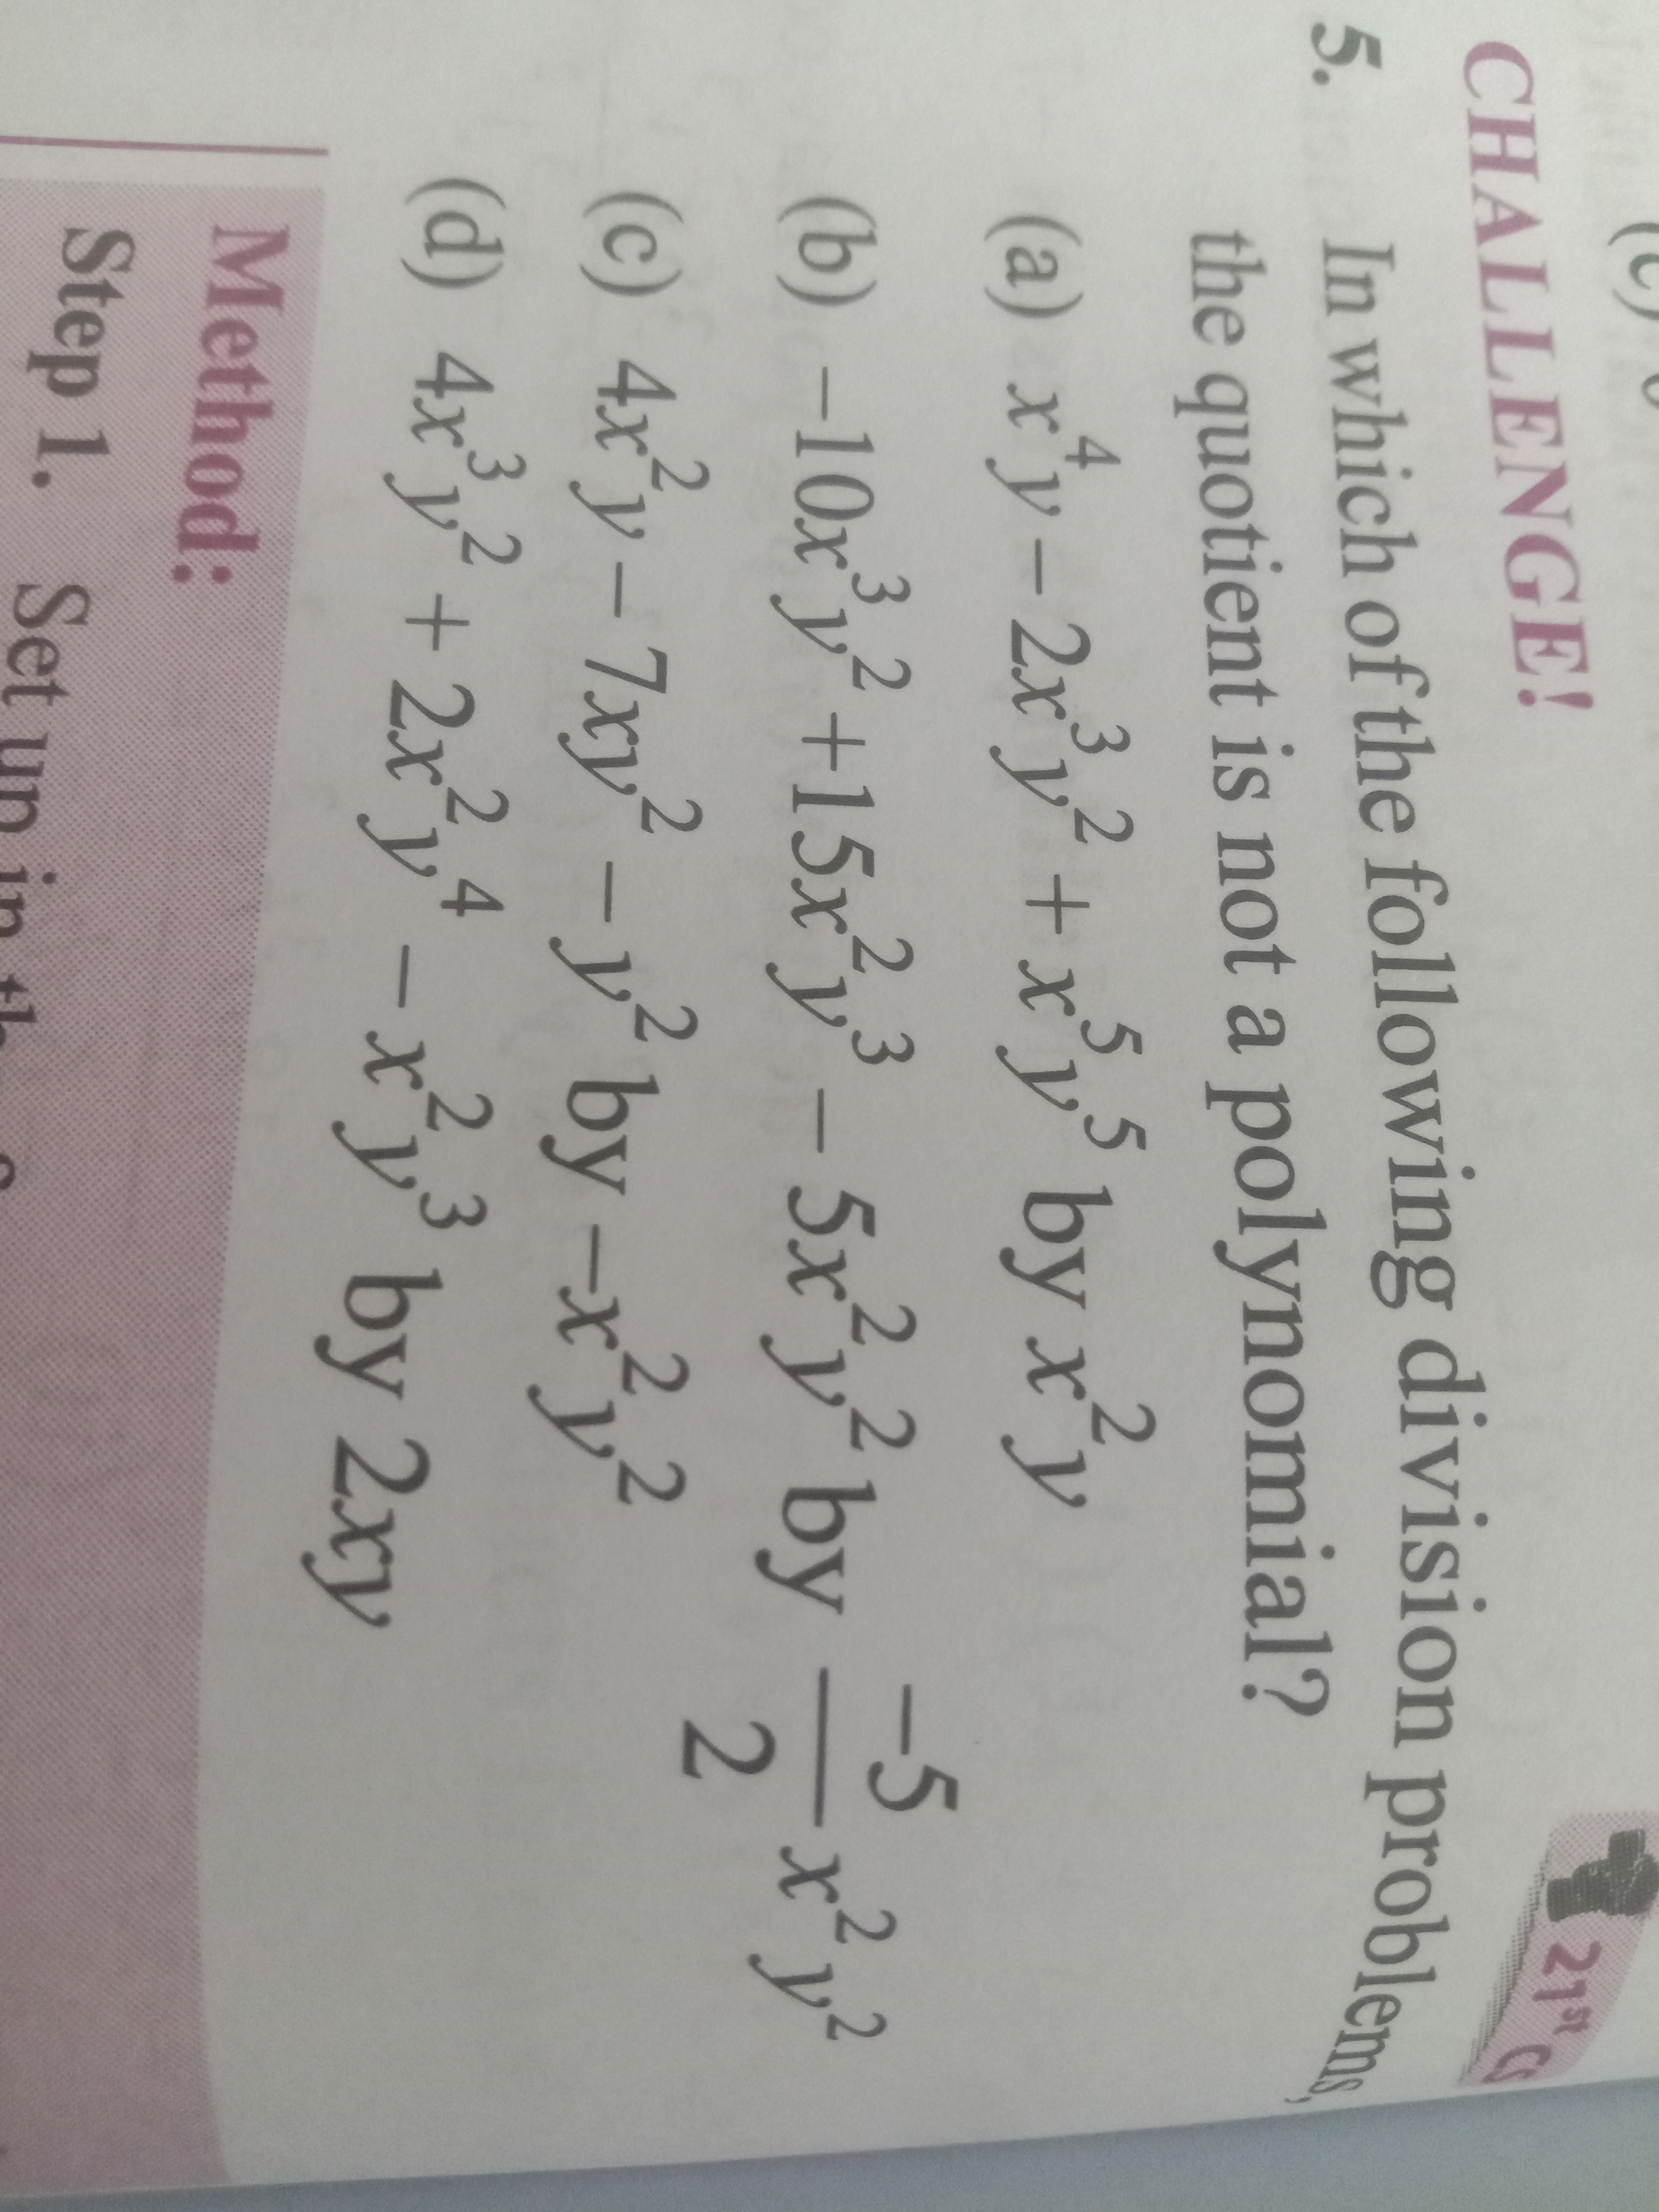 CHALLENGE!
21st
5. In which of the following division problems,
the quotient is not a polynomial?
(a) x⁴y – 2x³y² + x⁵y⁵ by x²y
(b) –10x³y² +15x²y³ – 5x²y² by –5/2 x²y²
(c) 4x²y – 7xy² – y² by –x²y²
(d) 4x³y² + 2x²y⁴ – x²y³ by 2xy
Method:
Step 1. Set up in